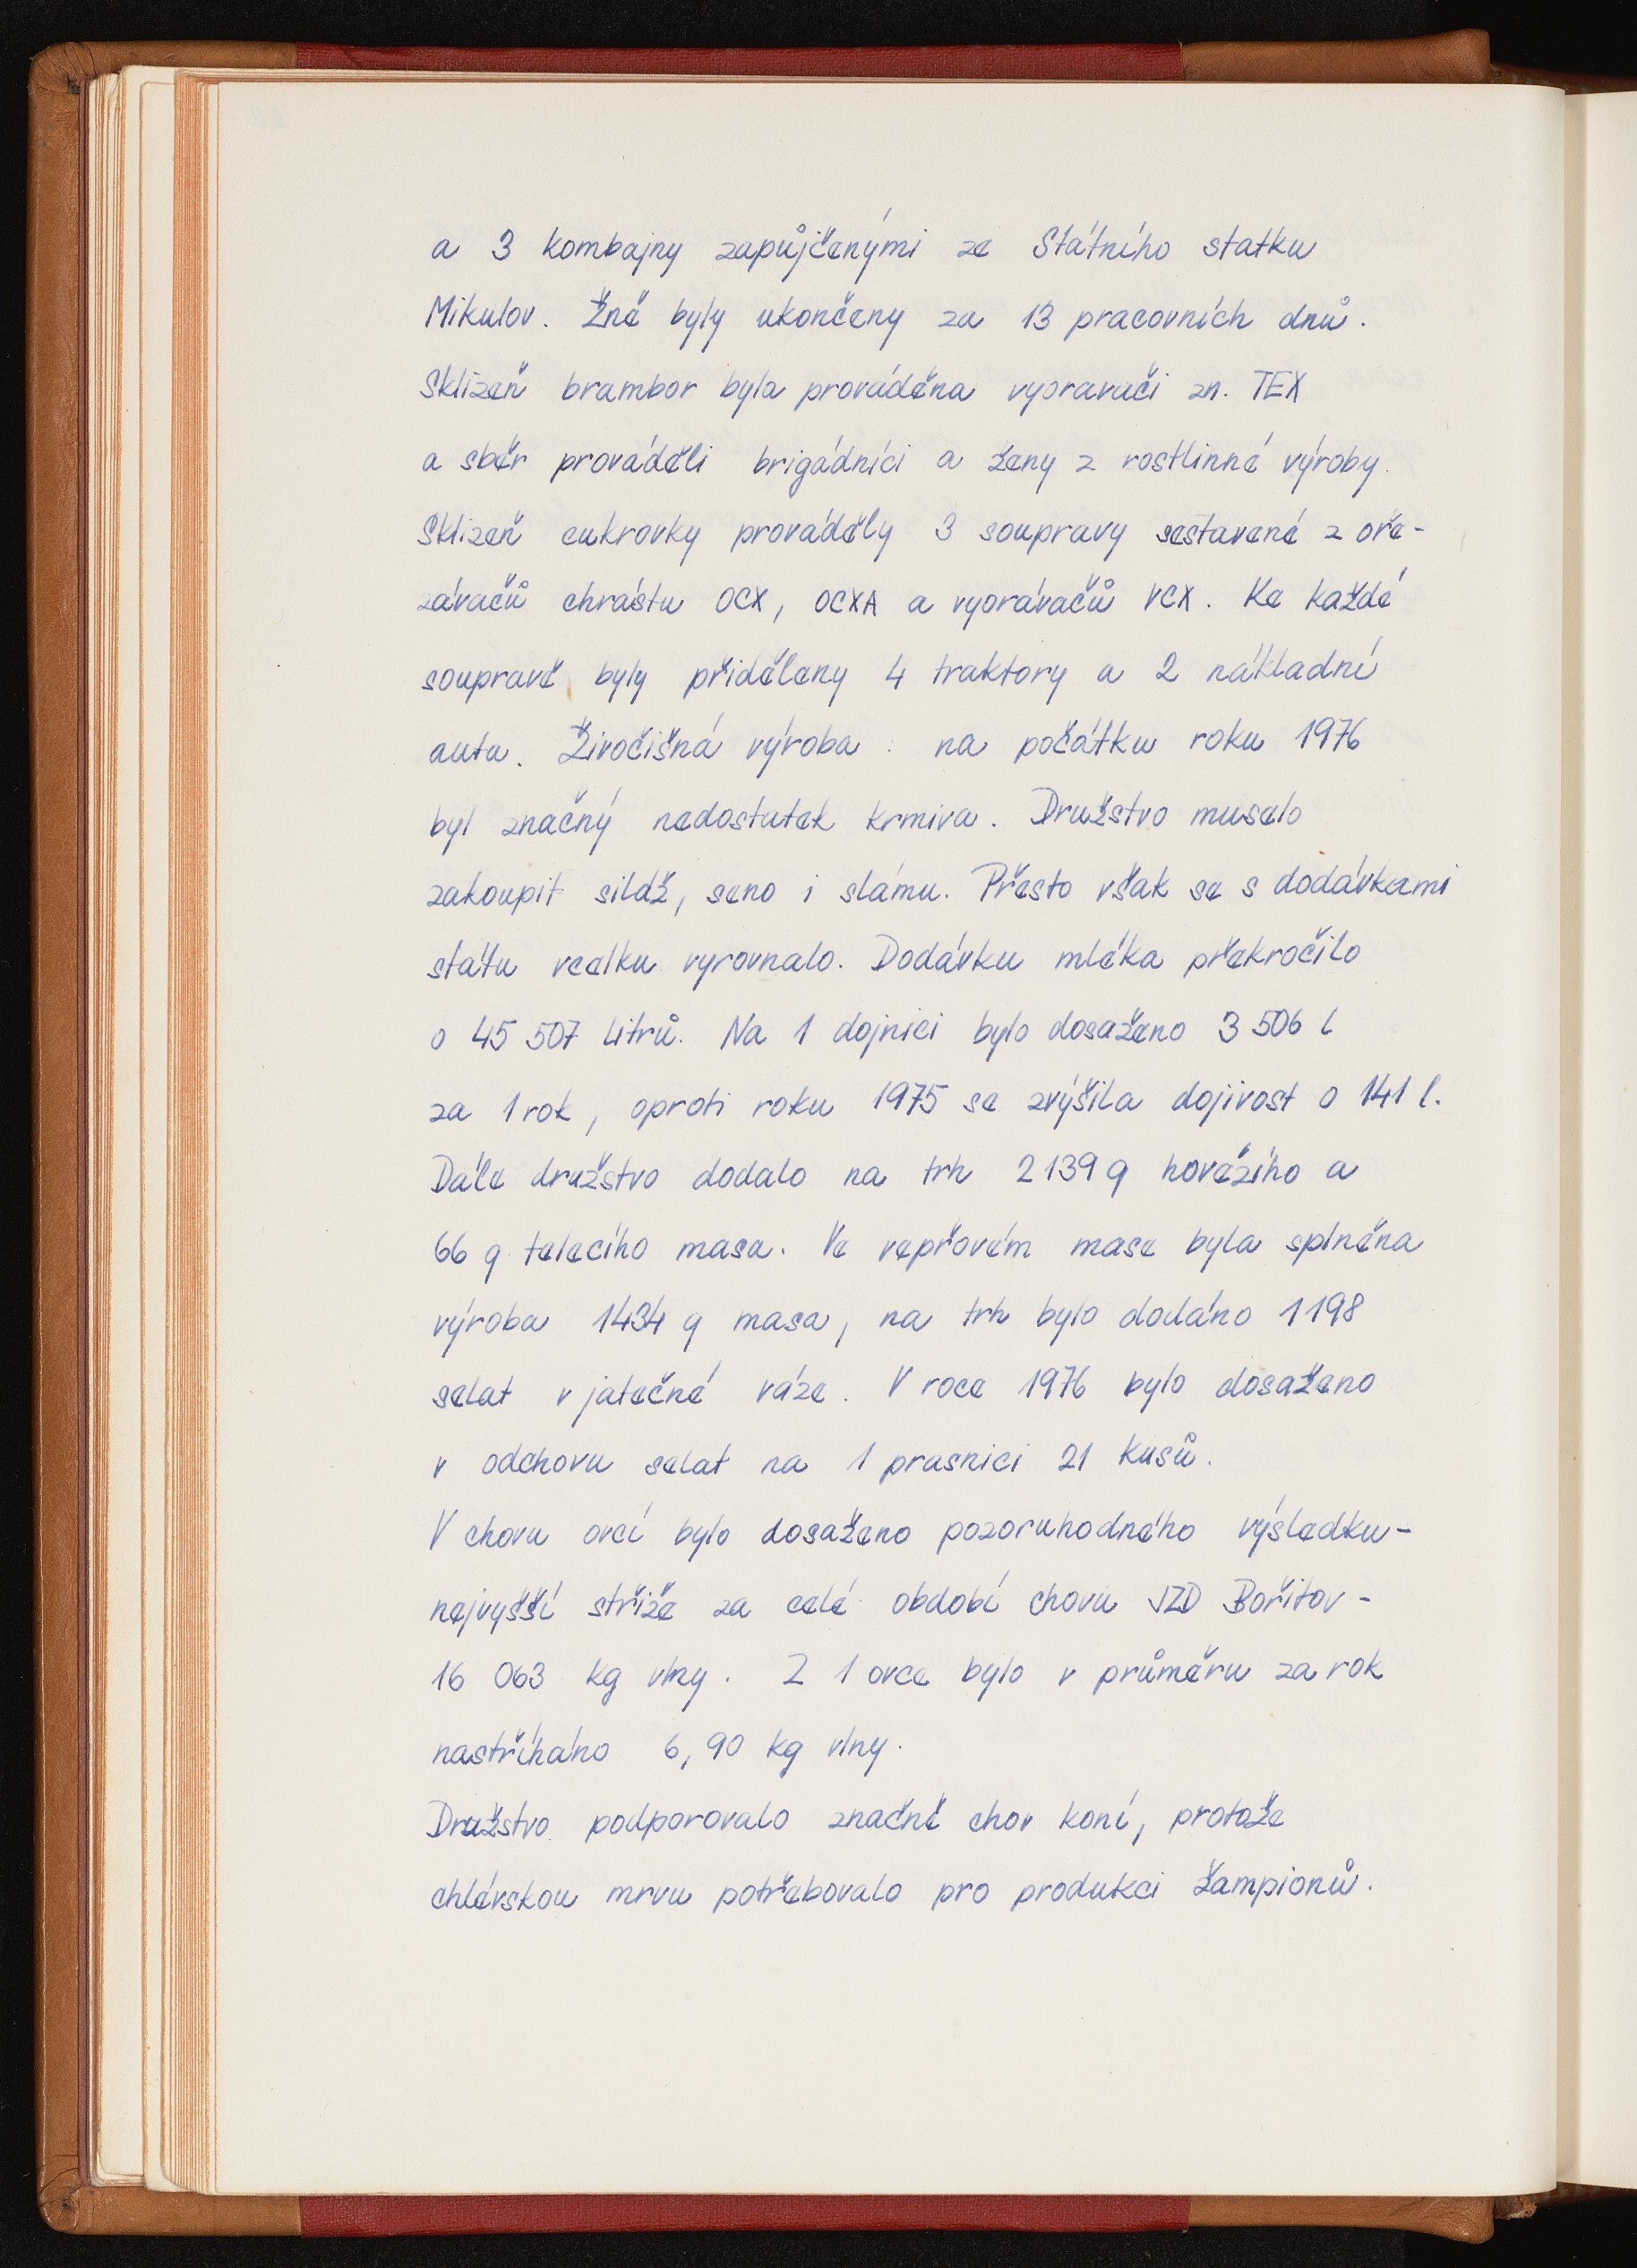 a 3 kombajny zapůjčenými ze Státního statku
Mikulov. Žně byly ukončeny za 13 pracovních dnů.
Sklizeň brambor byla prováděna vyoravači zn. TEX
a sběr prováděli brigádníci a ženy z rostlinné výroby.
Sklizeň cukrovky prováděly 3 soupravy sestavené z oře-
závačů chrástu OCX, OCXA a vyorávačů VCX. Ke každé
soupravě byly přiděleny 4 traktory a 2 nákladní
auta. Živočišná výroba : na počátku roku 1976
byl značný nedostatek krmiva. Družstvo muselo
zakoupit siláž, seno i slámu. Přesto však se s dodávkami
státu vcelku vyrovnalo. Dodávku mléka překročilo
o 45 507 litrů. Na 1 dojnici bylo dosaženo 3 506 l
za 1 rok, oproti roku 1975 se zvýšila dojivost o 141 l.
Dále družstvo dodalo na trh 2139 q hovězího a
66 q telecího masa. Ve vepřovém mase byla splněna
výroba 1434 q masa, na trh bylo dodáno 1198
selat v jatečné váze. V roce 1976 bylo dosaženo
v odchovu selat na 1 prasnici 21 kusů.
V chovu ovcí bylo dosaženo pozoruhodného výsledku-
nejvyšší stříže za celé období chovu JZD Bořitov -
16 063 kg vlny. Z 1 ovce bylo v průměru za rok
nastříháno 6,90 kg vlny.
Družstvo podporovalo značně chov koní, protože
chlévskou mrvu potřebovalo pro produkci žampionů.